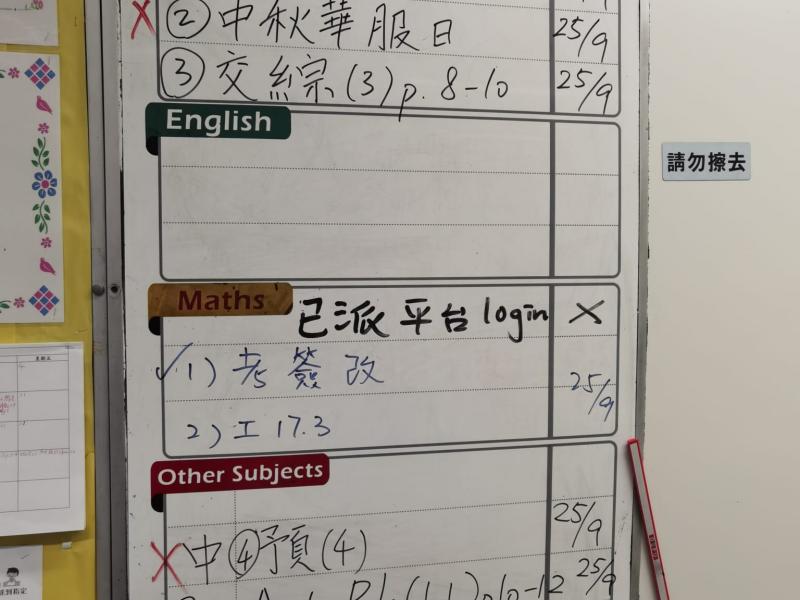 ② 中秋華服日 25/9
③ 交綜(3) p. 8-10 25/9
English
請勿擦去
Maths 已派平台login X
✓1) 考簽改
2) 工17.3 25/9
Other Subjects
25/9
X 中④預(4)
p10-12 25/9